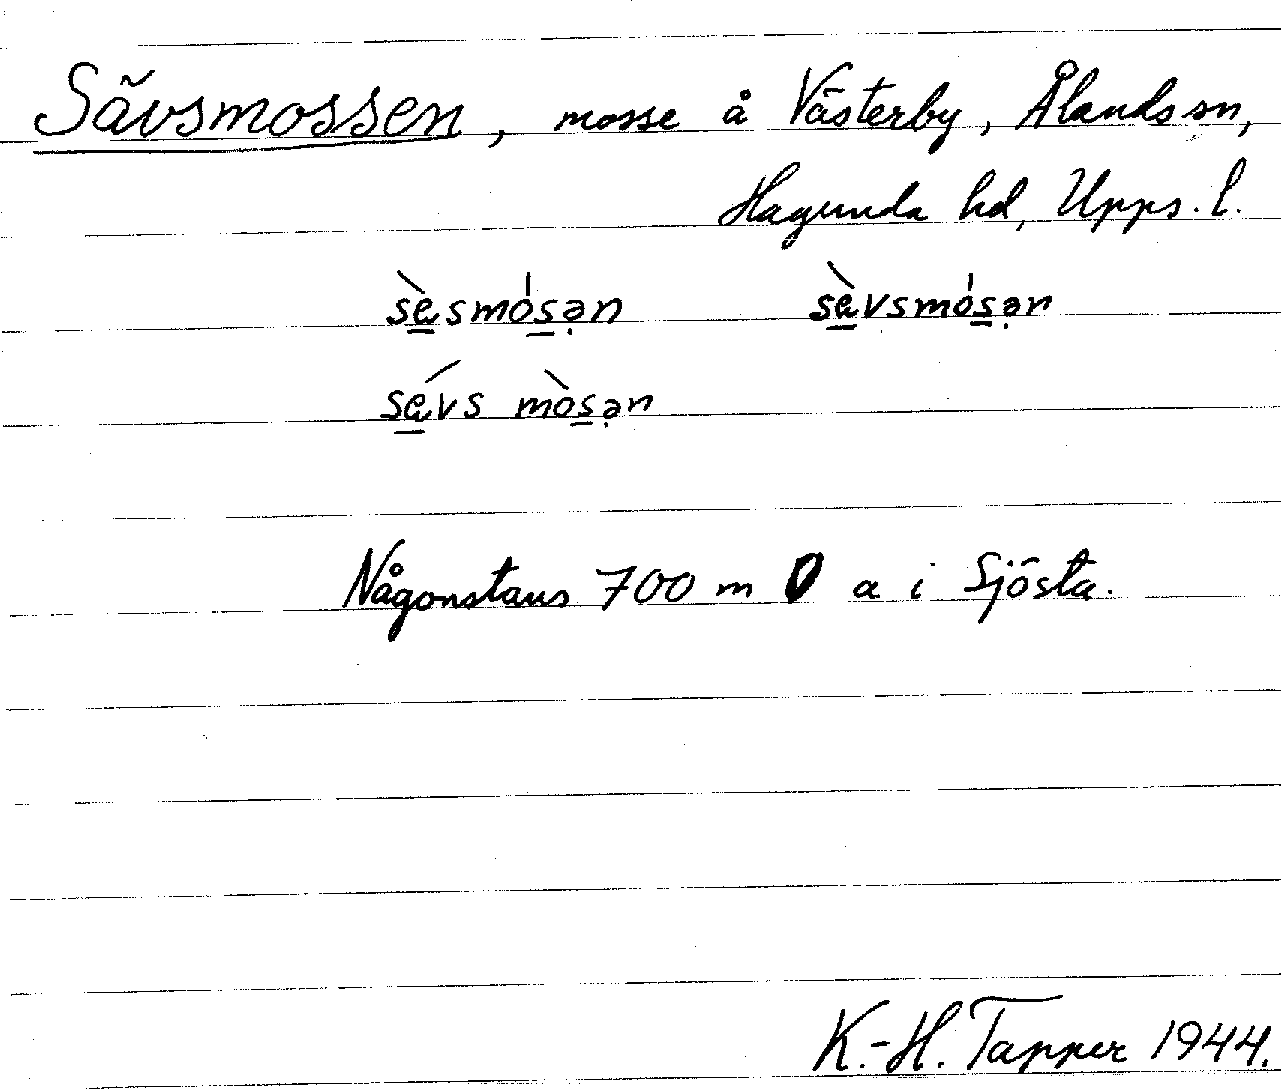 Sävsmossen, mosse å Västerby, Ålands sn,
Hagunda hd, Upps. l.
sè̠smós̠ən sè̠vsmós̠ən
sé̠vs mòs̠ən
Någonstans 700 m O a i Sjösta.
K.-H. Tapper 1944.